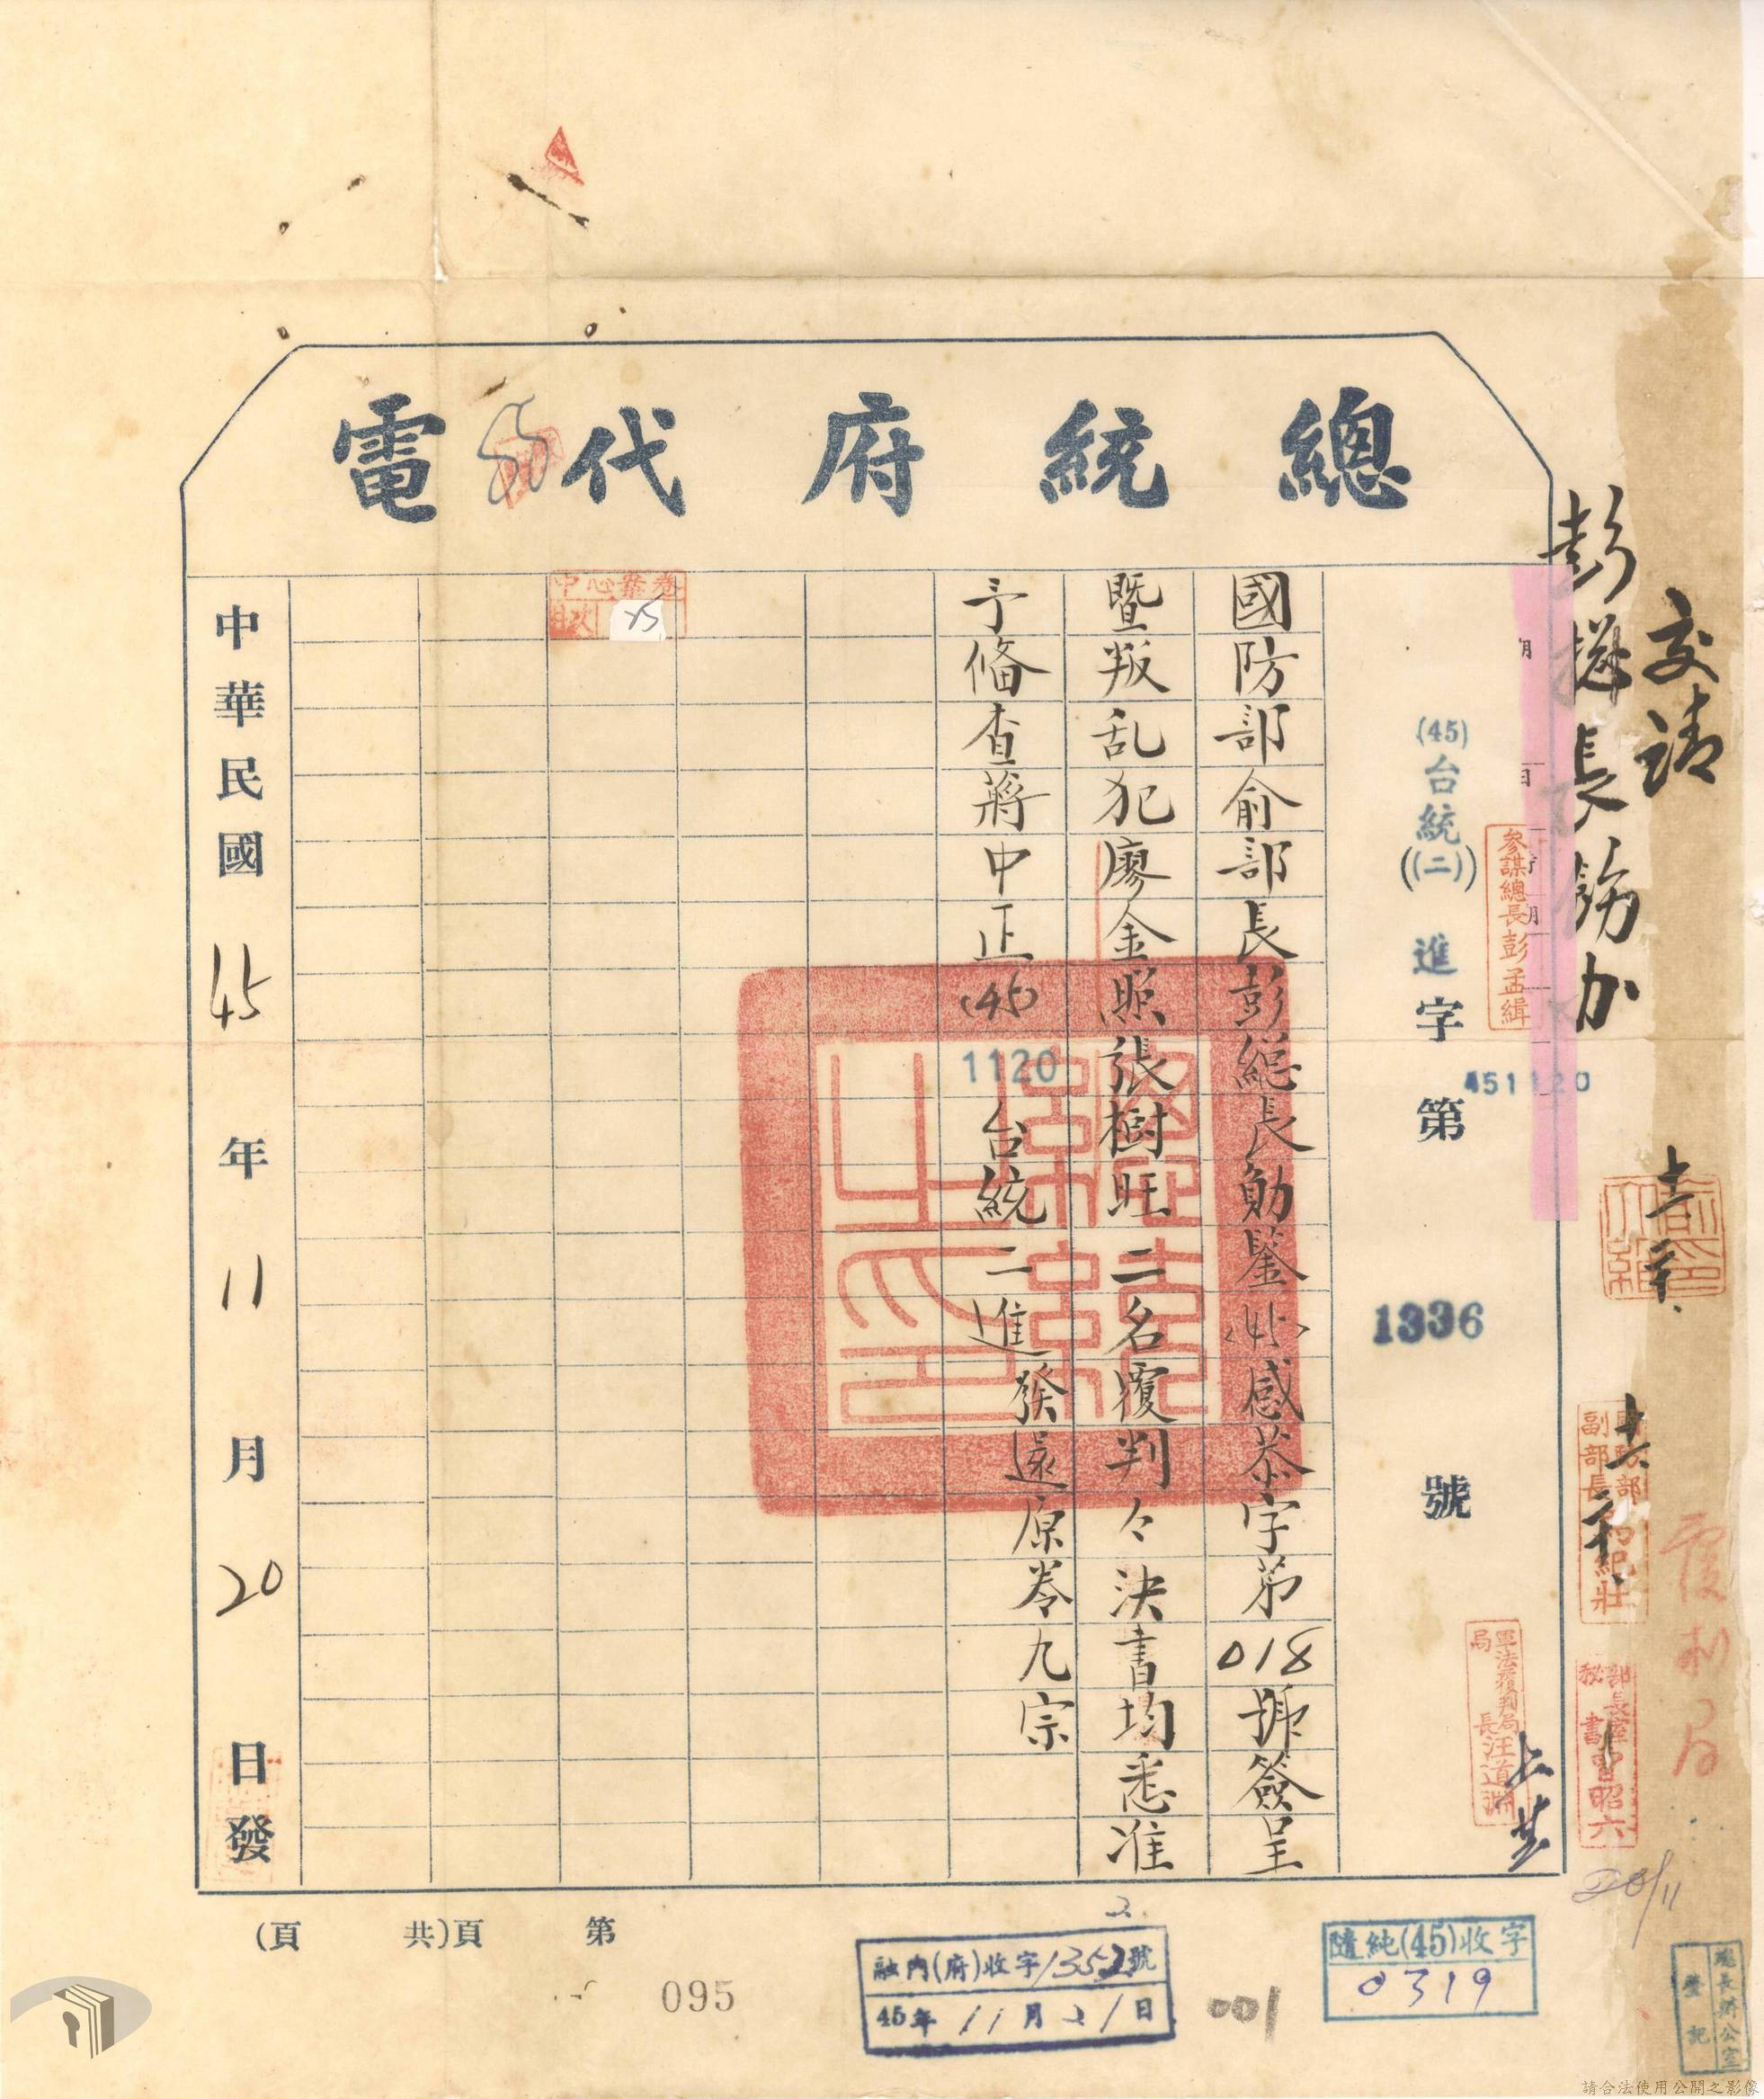 總統府代電
交請
彭總長勛办
(45)台統(二)進字第1336號
參謀總長彭孟緝
451120
國防部俞部長彭總長勛鑒(45)感恭字第018號簽呈
暨叛乱犯廖金照張樹旺二名覆判々決書均悉准
予備查蔣中正(45)1120台統二進發還原卷九宗
中華民國45年11月20日發
軍法覆判局局長汪道淵
覆判局
20/11
第 頁(共 頁)
095
融內(府)收字1352號
45年11月21日
001
隨純(45)收字
0319
總長辦公室
登記
請合法使用公開之影像